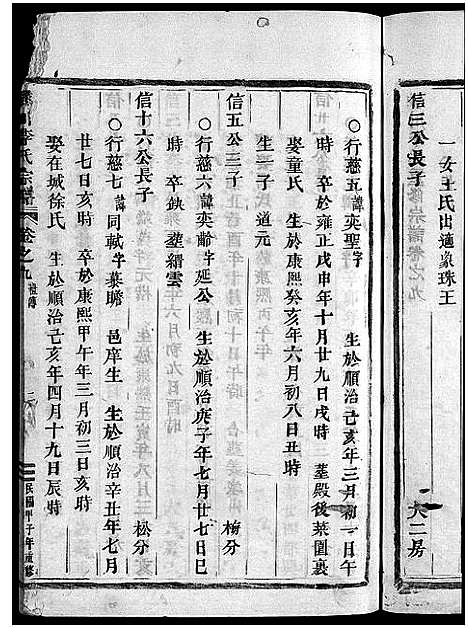 一女玉氏出適象珠王
信三公長子
大二房
○行慈五諱奕聖字 生於順治己亥年三月初一日午
時 卒於雍正戊申年十月廿九日戌時 塟殿後菜園裏
娶童氏 生於康熙癸亥年六月初八日丑時
信五公三子
梅分
○行慈六諱奕齡字延公 生於順治庚子年七月廿七日巳
時 卒缺 塟縉雲
信十六公長子
松分
○行慈七諱同軾字慕瞻 邑庠生 生於順治辛丑年七月
廿七日亥時 卒於康熙甲午年三月初三日亥時
娶在城徐氏 生於順治己亥年四月十九日辰時
李氏宗譜 卷之九
民國甲子年重修